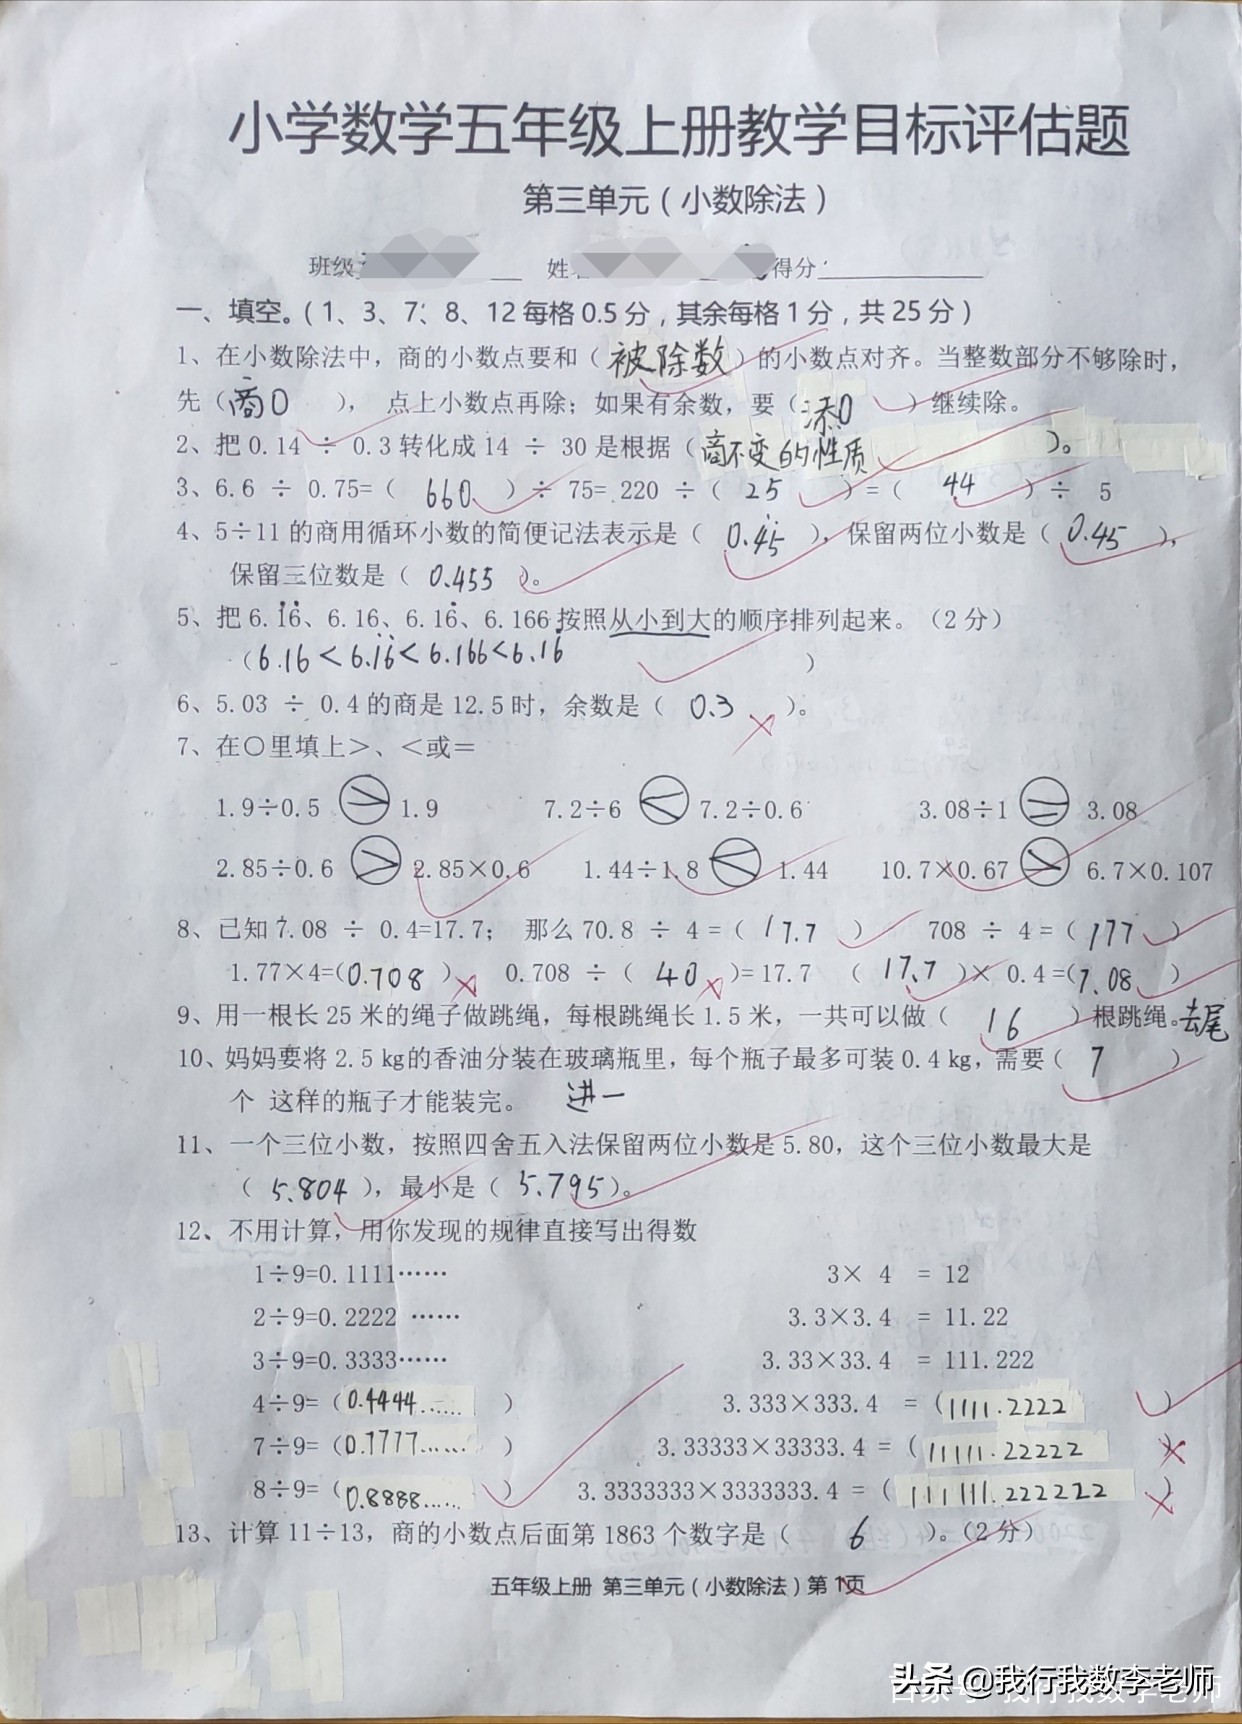 小学数学五年级上册教学目标评估题
第三单元（小数除法）
班级 姓 得分：
一、填空。（1、3、7、8、12每格0.5分，其余每格1分，共25分）
1、在小数除法中，商的小数点要和（被除数）的小数点对齐。当整数部分不够除时，
先（商0），点上小数点再除；如果有余数，要（添0）继续除。
2、把0.14 ÷ 0.3转化成14 ÷ 30是根据（商不变的性质）。
3、6.6 ÷ 0.75=（660）÷ 75= 220 ÷（25）=（44）÷ 5
4、5÷11的商用循环小数的简便记法表示是（0.4̇5̇），保留两位小数是（0.45），
保留三位数是（0.455）。
5、把6.1̇6̇、6.16、6.16̇、6.166按照从小到大的顺序排列起来。（2分）
（6.16<6.1̇6̇<6.166<6.16̇）
6、5.03 ÷ 0.4的商是12.5时，余数是（0.3）。
7、在○里填上>、<或=
1.9÷0.5 > 1.9 7.2÷6 < 7.2÷0.6 3.08÷1 = 3.08
2.85÷0.6 > 2.85×0.6 1.44÷1.8 < 1.44 10.7×0.67 > 6.7×0.107
8、已知7.08 ÷ 0.4=17.7； 那么70.8 ÷ 4 =（17.7） 708 ÷ 4 =（177）
1.77×4=（0.708） 0.708 ÷（40）= 17.7 （17.7）× 0.4 =（7.08）
9、用一根长25米的绳子做跳绳，每根跳绳长1.5米，一共可以做（16）根跳绳。去尾
10、妈妈要将2.5kg的香油分装在玻璃瓶里，每个瓶子最多可装0.4kg，需要（7）
个 这样的瓶子才能装完。 进一
11、一个三位小数，按照四舍五入法保留两位小数是5.80，这个三位小数最大是
（5.804），最小是（5.795）。
12、不用计算，用你发现的规律直接写出得数
1÷9=0.1111…… 3× 4 = 12
2÷9=0.2222 …… 3.3×3.4 = 11.22
3÷9=0.3333…… 3.33×33.4 = 111.222
4÷9=（0.4444……） 3.333×333.4 =（1111.2222）
7÷9=（0.7777……） 3.33333×33333.4 =（11111.22222）
8÷9=（0.8888……） 3.3333333×3333333.4 =（111111.222222）
13、计算11÷13，商的小数点后面第1863个数字是（6）。（2分）
五年级上册 第三单元（小数除法）第1页
头条 @我行我数李老师